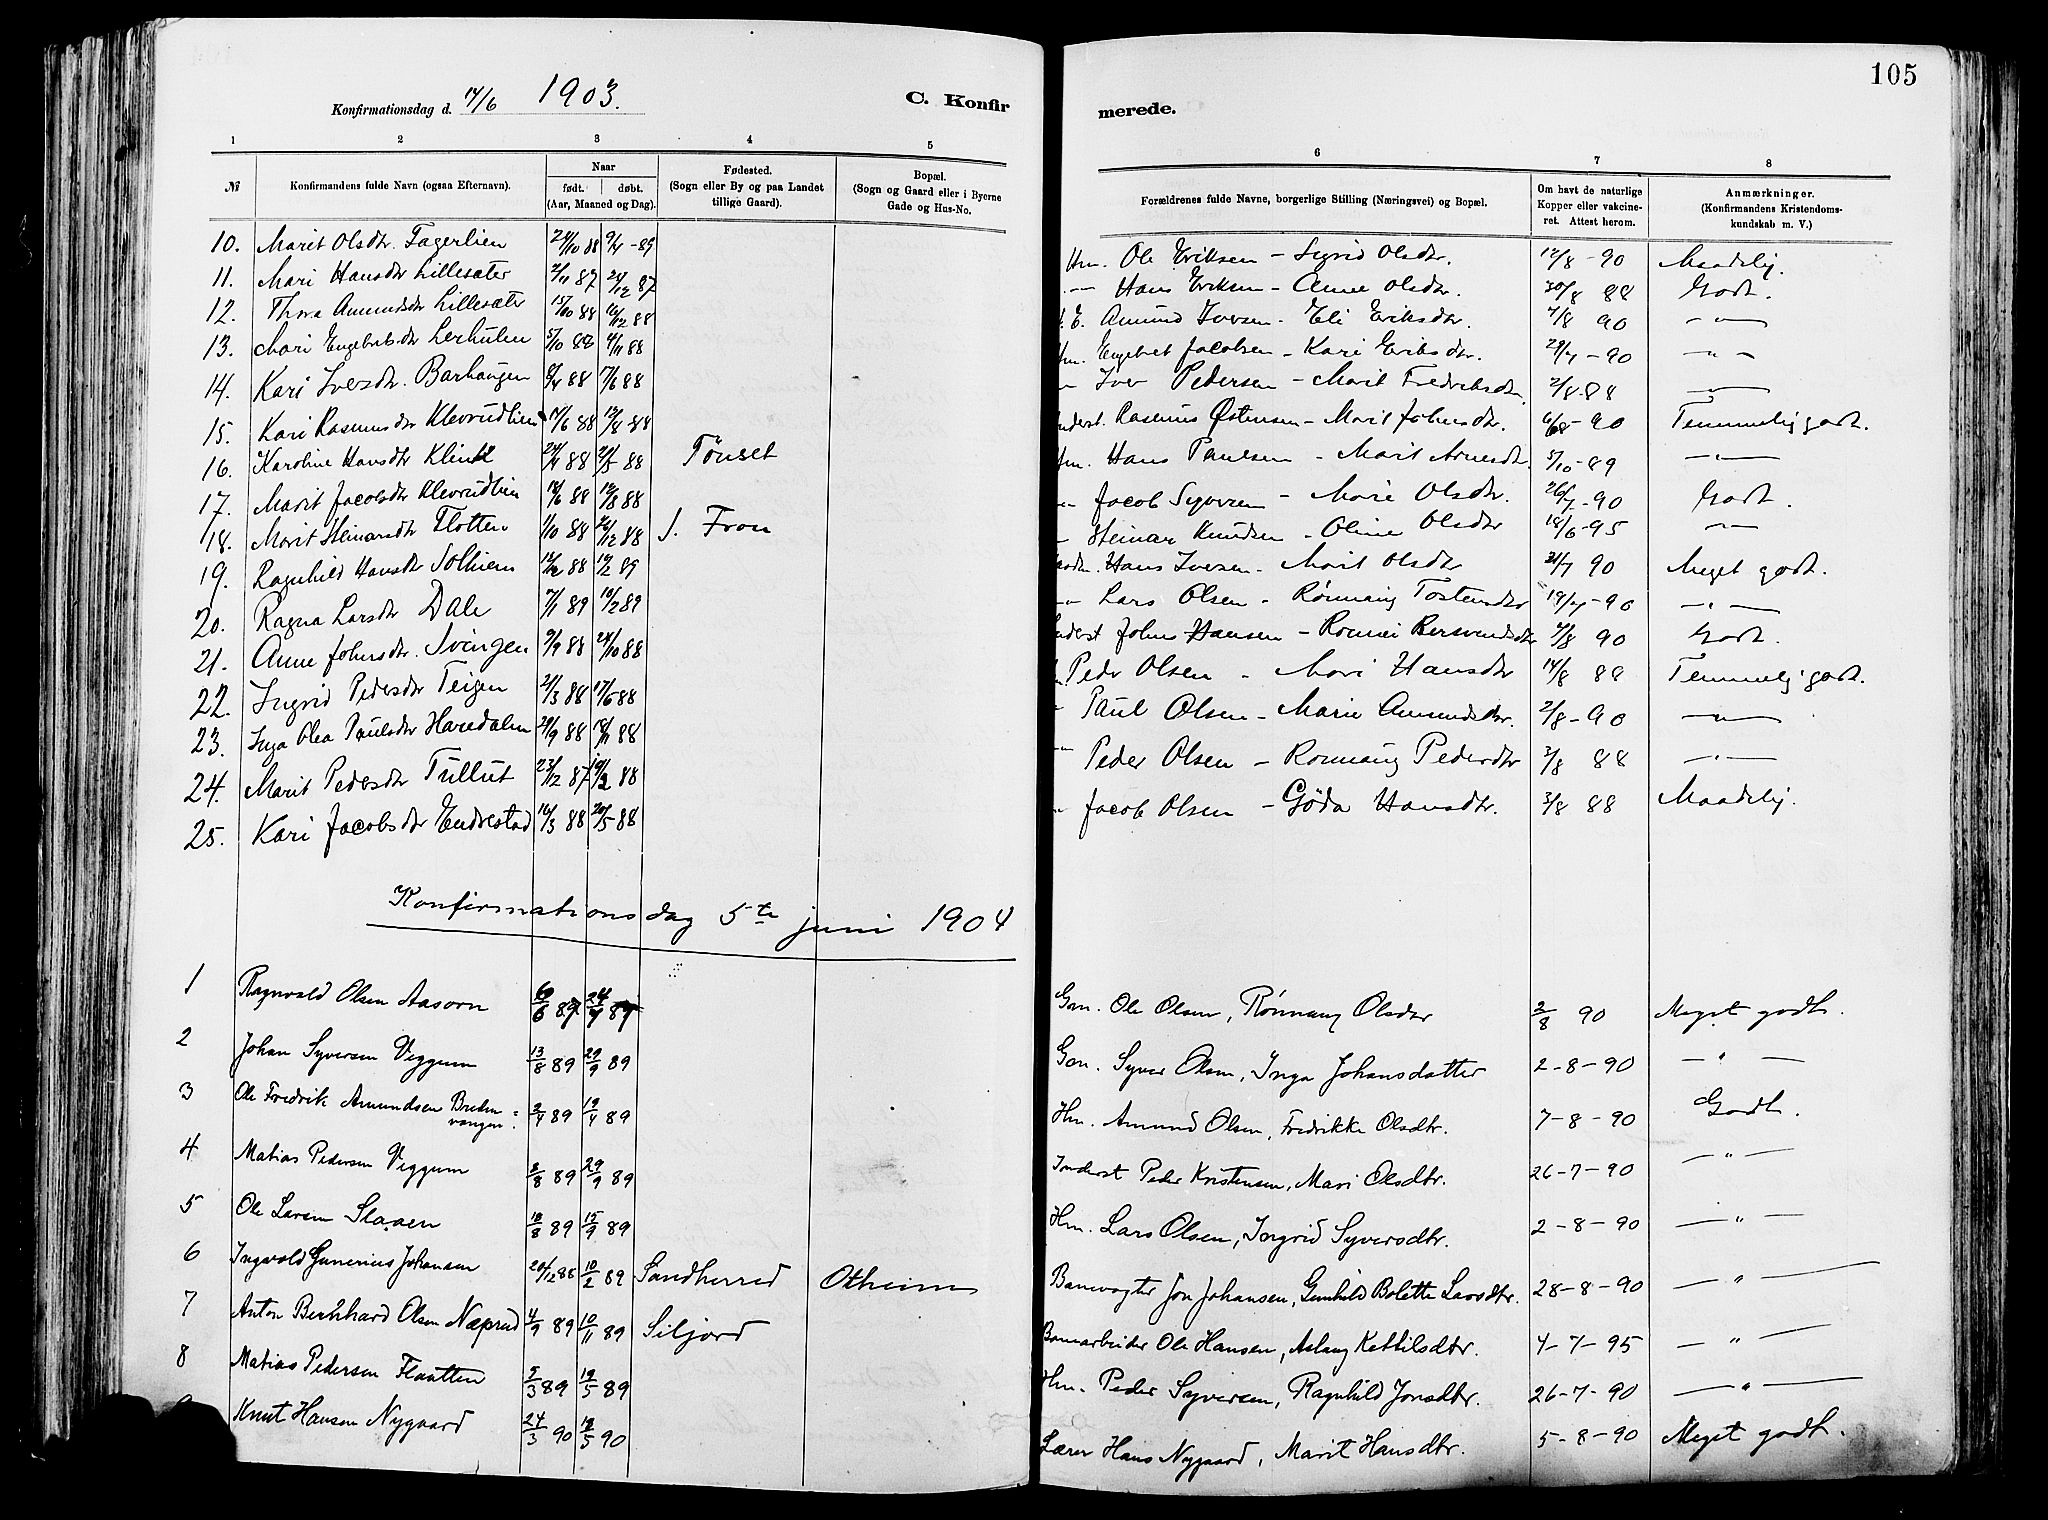 105
Konfirmationsdag d. 14/6 1903.
C. Konfirmerede.
1 2 3 4 5 6 7 8
№ Konfirmandens fulde Navn (ogsaa Efternavn). Naar født. døbt. (Aar, Maaned og Dag). Fødested. (Sogn eller By og paa Landet tillige Gaard). Bopæl. (Sogn og Gaard eller i Byerne Gade og Hus-No. Forældrenes fulde Navne, borgerlige Stilling (Næringsvei) og Bopæl. Om havt de naturlige Kopper eller vakcineret. Attest herom. Anmærkninger. (Konfirmandens Kristendomskundskab m. V.)
10. Marit Olsdtr. Fagerlien 88 9/4-89 Hm. Ole Eriksen - Sigrid Olsdtr. 12/8-90 Maadelig.
11. Mari Hansdtr Lillesæter 2/11 87 87 -"- Hans Eriksen - Anne Olsdtr. 30/8 88 Godt.
12. Thora Amundsdtr Lillesæter 15/10 88 16/12 88 Amund Iversen - Eli Eriksdtr. 7/8 90 -"-
13. Mari Engebretsdtr Lerhulen 5/10 88 4/11 88 Hm. Engebret Jacobsen - Kari Eriksdtr. 29/7-90 -"-
14. Kari Iversdtr. Barhaugen 8/4 88 17/6 88 Iver Pedersen - Marit Fredriksdtr. 2/8-88 -"-
15. Kari Rasmusdtr Klevrudlien 17/6 88 12/8-88 Inderst. Rasmus Østensen - Marit Johnsdtr. 90 Temmelig godt.
16. Karoline Hansdtr Klink 24/4 88 21/5 88 Tönset Hm. Hans Paulsen - Marit Arnesdtr. 5/10-89 -"-
17. Marit Jacobsdtr Klevrudlien 88 12/8 88 Jacob Syversen - Mari Olsdtr. 26/7-90 Godt.
18. Marit Steinarsdtr Flotten 1/10 88 26/12 88 S. Fron Steinar Knudsen - Oline Olsdtr 18/6-95 -"-
19. Ragnhild Hansdtr Solhiem 88 89 Hans Iversen - Marit Olsdtr 31/7 90 Meget godt.
20. Ragna Larsdtr Dale 7/1 89 10/2 89 -"- Lars Olsen - Rønnaug Tostensdtr 19/7-90 -"-
21. Anne Johnsdtr. Svingen 9/9 88 24/10 88 Inderst John Hansen - Ronnei Bersvendsdtr 7/8 90 Godt.
22. Ingrid Pedersdtr Teigen 21/3 88 17/5 88 Peder Olsen - Mari Hansdtr 14/8 88 Temmelig godt.
23. Inga Olea Paulsdtr Haredalen 29/9 88 18/11 88 Paul Olsen - Marie Amundsdtr. 2/8-90 -"-
24. Marit Pedersdtr Tullut 23/12 87 88 Peder Olsen - Ronnaug Pedersdtr 2/8 88 -"-
25. Kari Jacobsdtr Endrestad 16/3 88 20/5 88 Jacob Olsen - Göda Hansdtr. 3/8 88 Maadelig.
Konfirmationsdag 5te juni 1904
1 Ragnvald Olsen Aasorn 89 89 Gm. Ole Olsen, Rönnaug Olsdtr 2/8 90 Meget godt.
2 Johan Syversen Veggum 13/8 89 29/9 89 Gm. Syver Olsen, Inga Johansdatter 2-8-90 -"-
3 Ole Fredrik Amundsen Bredevangen. 2/4 89 19/4 89 Hm. Amund Olsen, Fredrikke Olsdtr. 7-8-90 Godt.
4 Matias Pedersen Veggum 2/8 89 29/9 89 Inderst Peder Kristensen, Mari Olsdtr. 26-7-90 -"-
5 Ole Larsen Slaaen 18/8 89 15/9 89 Hm. Lars Olsen, Ingrid Syversdtr. 2-8-90 -"-
6 Ingvald Gunerius Johansen 20/12 88 10/2 89 Sandherred Otheim Banevogter Jon Johansen, Gunhild Bolette Larsdtr. 28-8-90 -"-
7 Anton Bernhard Olsen Næprud 4/9 89 10/11 89 Siljord Banearbeider Ole Hansen, Aslaug Kettilsdtr. 4-7-95 -"-
8 Matias Pedersen Flaatten 5/3 89 19/5 89 Hm. Peder Syversen, Ragnhild Jonsdtr. 26-7-90 -"-
Knut Hansen Nygaard 24/3 90 18/5 90 Lærer Hans Nygaard, Marit Hansdtr. 5-8-90 Meget godt.